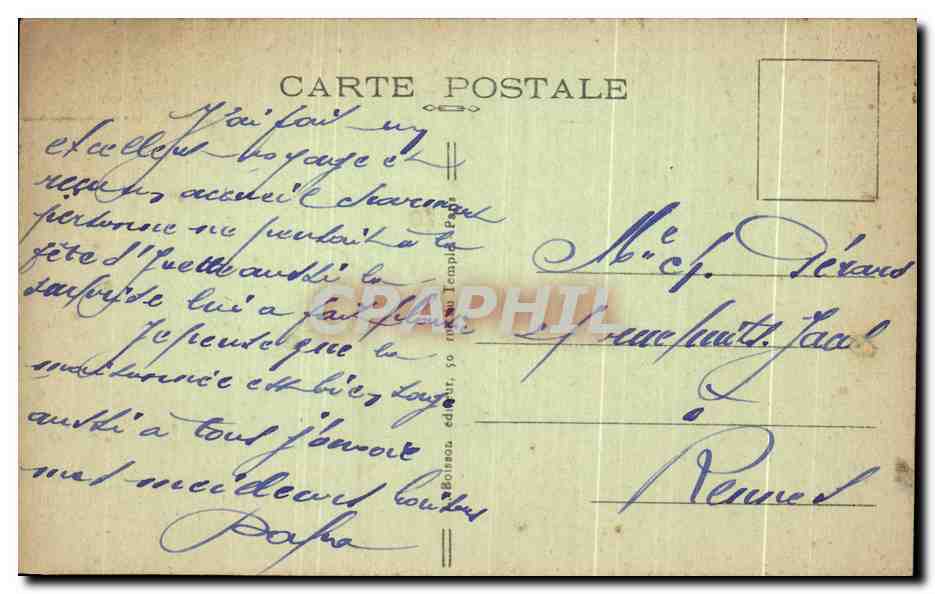 CARTE POSTALE
J'ai fait un
excellent voyage et
reçu un accueil charmant
personne ne pensait à la
fête d'Yvette aussi la
surprise lui a fait plaisir
Je pense que la
maisonnée est bien sage
aussi à tous j'envoie
mes meilleurs baisers
Papa
Boisson éditeur, 50 du Temple, Paris
CPAPHIL
Mlle Ch. Gérard
Jacob
Rennes